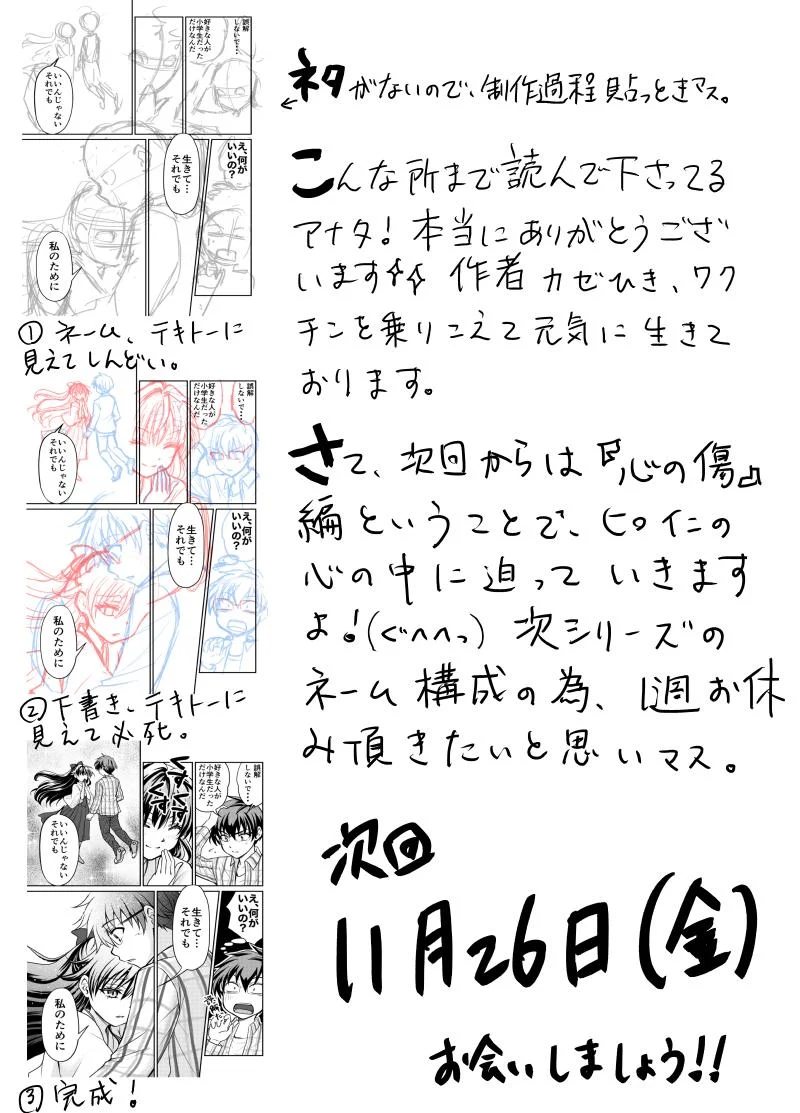 ネタがないので、制作過程貼っときマス。
こんな所まで読んで下さってる
アナタ!本当にありがとうござ
います☆☆ 作者カゼひき、ワク
チンを乗りこえて元気に生きて
おります。
さて、次回からは『心の傷』
編ということで、ヒロインの
心の中に迫っていきます
よ!(ぐへへっ)次シリーズの
ネーム構成の為、1週お休
み頂きたいと思いマス。
次回
11月26日(金)
お会いしましょう!!
誤解
しないで…
好きな人が
小学生だった
だけなんだ
いいんじゃない
それでも
え、何が
いいの?
生きて…
それでも
私のために
①ネーム、テキトーに
見えてしんどい。
誤解
しないで…
好きな人が
小学生だった
だけなんだ
いいんじゃない
それでも
え、何が
いいの?
生きて…
それでも
私のために
②下書き、テキトーに
見えて必死。
誤解
しないで…
好きな人が
小学生だった
だけなんだ
くすくす
いいんじゃない
それでも
え、何が
いいの?
生きて…
それでも
私のために
③完成!